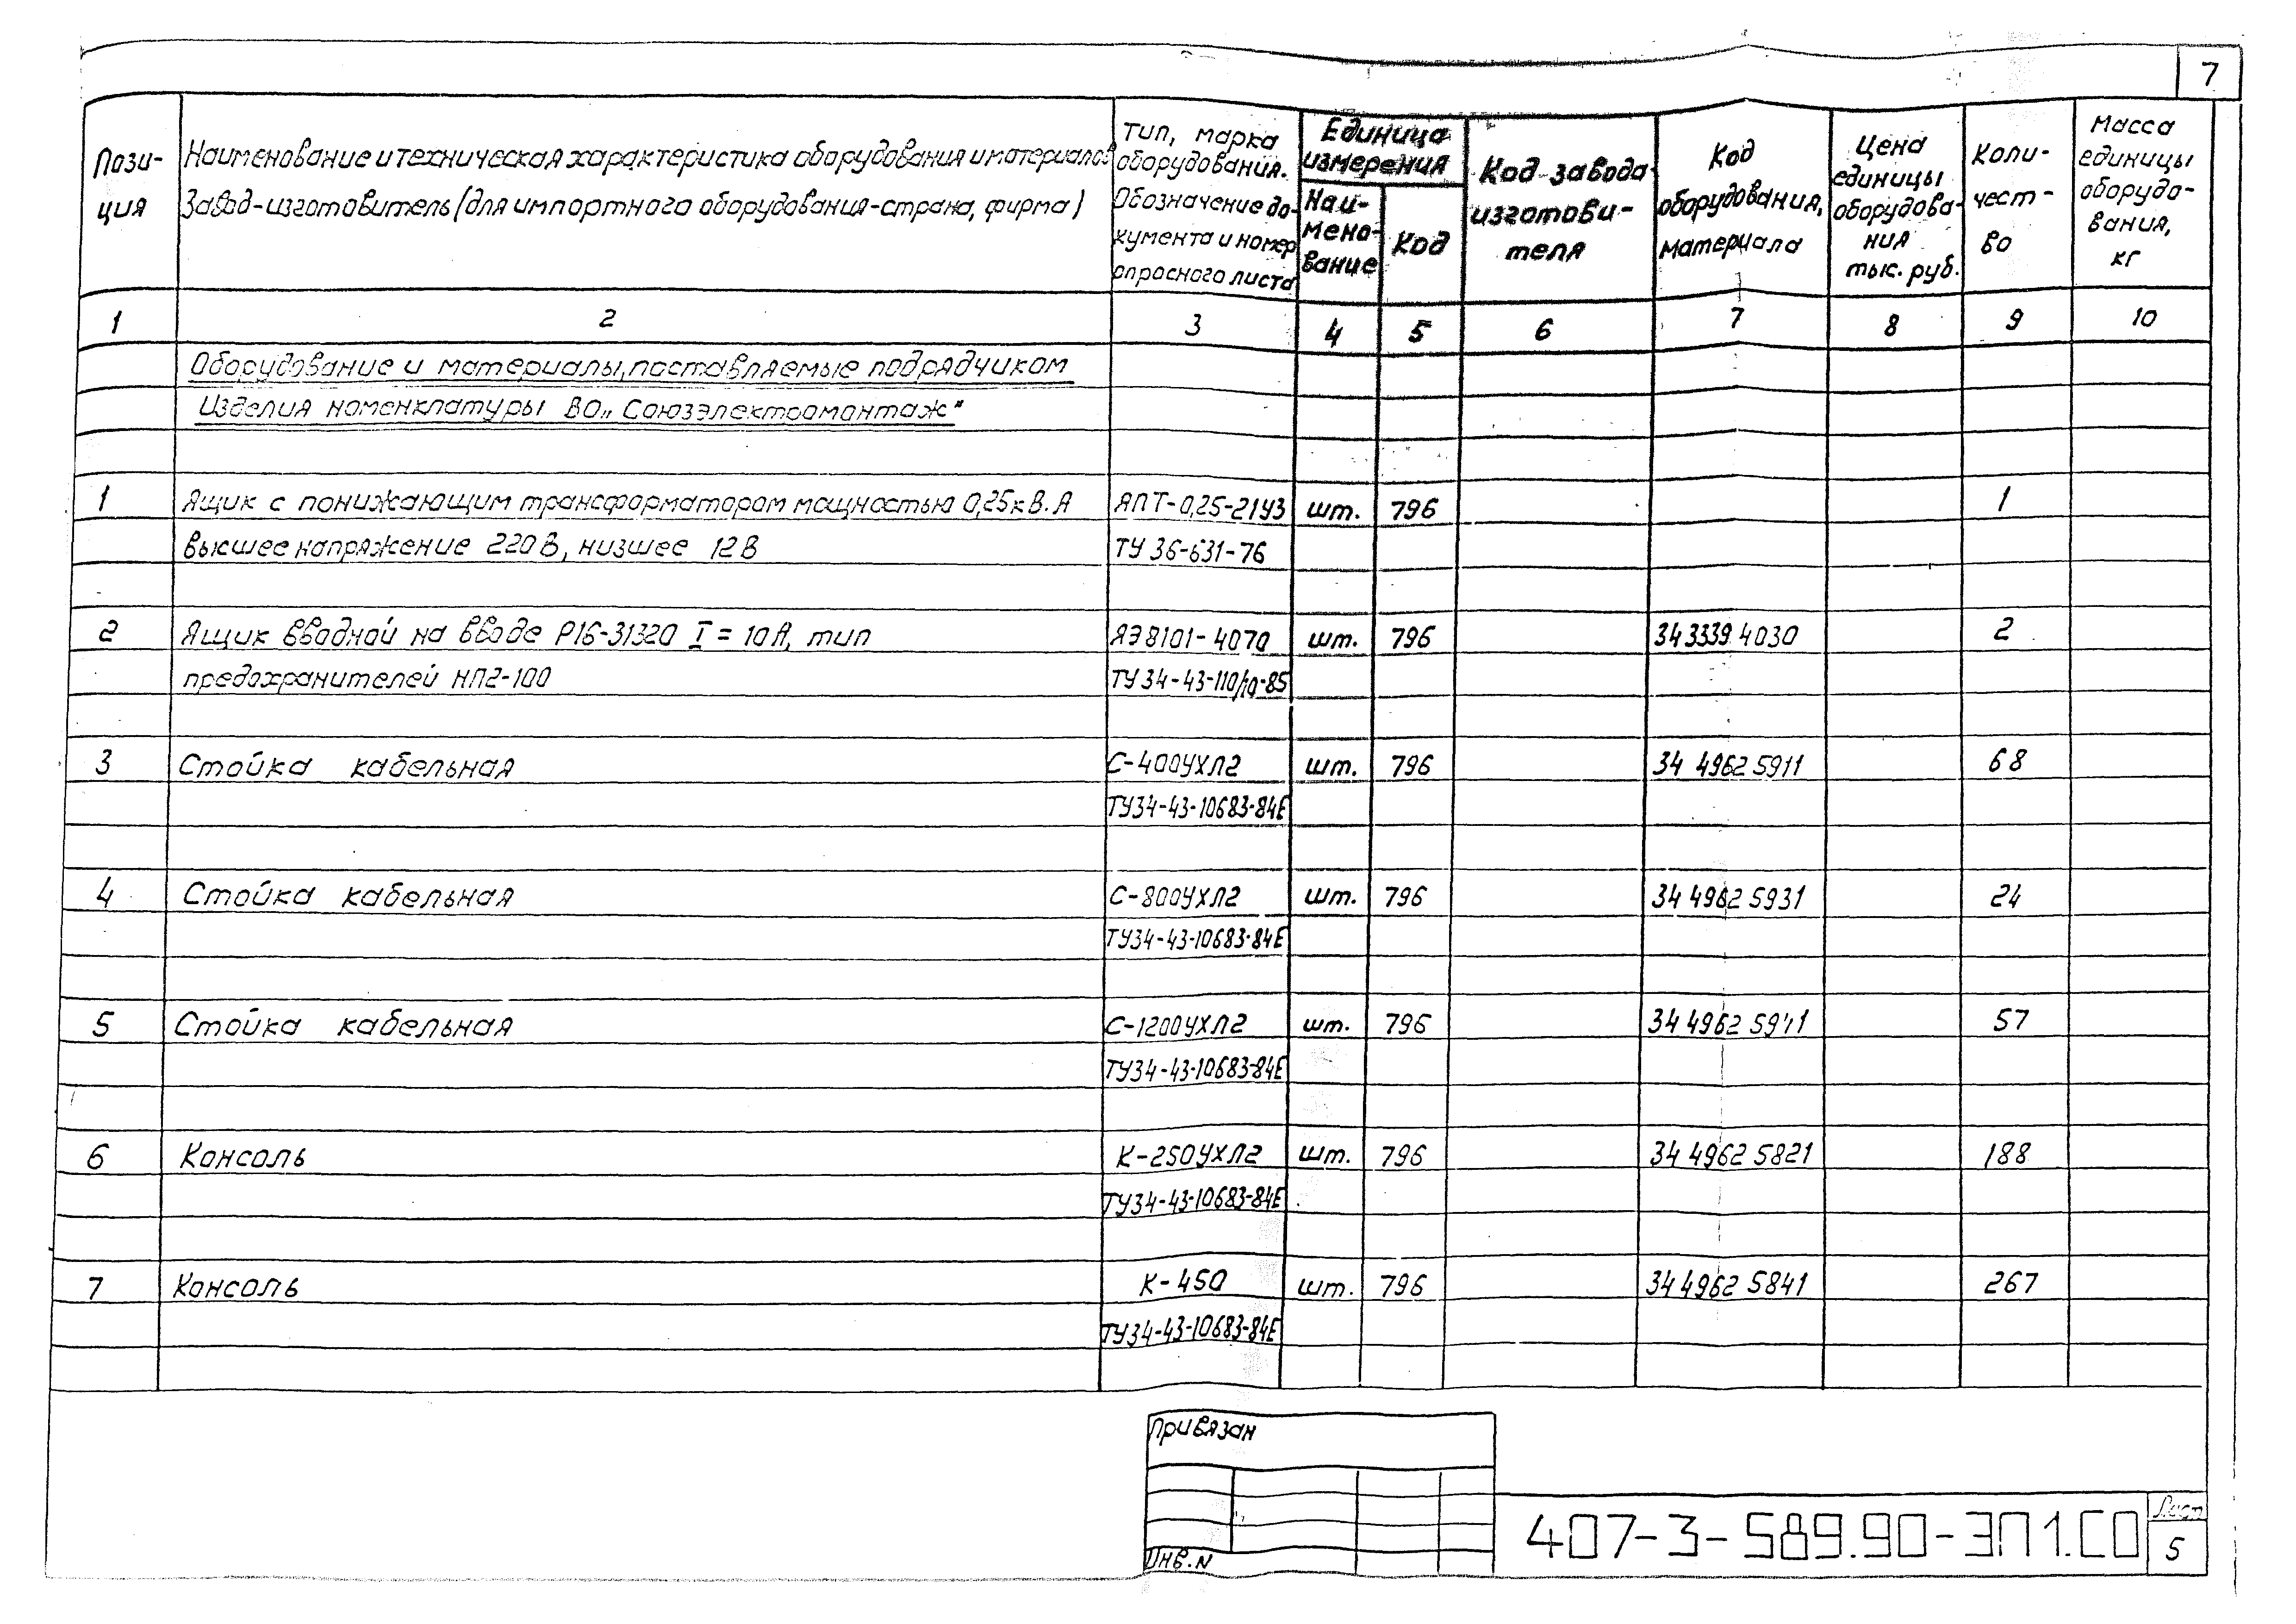 7
Пози-
ция
Наименование и техническая характеристика оборудования и материалов
Завод-изготовитель (для импортного оборудования-страна, фирма)
Тип, марка
оборудования.
Обозначение до-
кумента и номер
опросного листа
Единица
измерения
Наи-
мено-
вание
Код
Код завода-
изготови-
теля
Код
оборудования,
материала
Цена
единицы
оборудова-
ния
тыс. руб.
Коли-
чест-
во
Масса
единицы
оборудо-
вания,
кг
1 2 3 4 5 6 7 8 9 10
Оборудование и материалы, поставляемые подрядчиком
Изделия номенклатуры ВО „Союзэлектромонтаж"
1 Ящик с понижающим трансформатором мощностью 0,25кВ.А ЯПТ-0,25-21У3 шт. 796 1
высшее напряжение 220В, низшее 12В ТУ 36-631-76
2 Ящик вводной на вводе Р16-31320 I = 10А, тип ЯЭ8101-4070 шт. 796 34 3339 4030 2
предохранителей НП2-100 ТУ 34-43-110/10-85
3 Стойка кабельная С-400УХЛ2 шт. 796 34 4962 5911 68
ТУ34-43-10683-84Е
4 Стойка кабельная С-800УХЛ2 шт. 796 34 4962 5931 24
ТУ34-43-10683-84Е
5 Стойка кабельная С-1200УХЛ2 шт. 796 34 4962 5941 57
ТУ34-43-10683-84Е
6 Консоль К-250УХЛ2 шт. 796 34 4962 5821 188
ТУ34-43-10683-84Е
7 Консоль К-450 шт. 796 34 4962 5841 267
ТУ34-43-10683-84Е
Привязан
Инв.N
407-3-589.90-ЭП1.СО
Лист
5